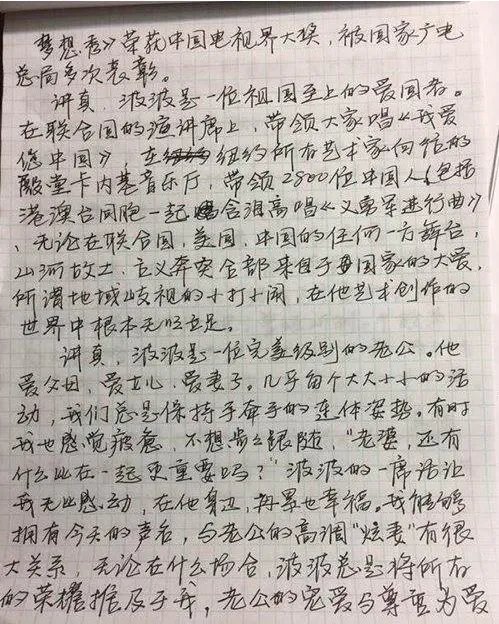 梦想秀》荣获中国电视界大奖，被国家广电
总局多次表彰。
讲真，波波是一位祖国至上的爱国者。
在联合国的演讲席上，带领大家唱《我爱
您中国》，在纽约所有艺术家向往的
殿堂卡内基音乐厅，带领2800位中国人（包括
港澳台同胞一起含泪高唱《义勇军进行曲》
，无论在联合国，美国，中国的任何一方舞台，
山河故土，主义奔突全部来自于国家的大爱，
所谓地域歧视的小打小闹，在他艺术创作的
世界中根本无以立足。
讲真，波波是一位完美级别的老公。他
爱父母，爱女儿，爱妻子。几乎每个大大小小的活
动，我们总是保持手牵手的连体姿势。有时
我也感觉疲惫，不想步步跟随，“老婆，还有
什么比在一起更重要吗？”波波的一席话让
我无比感动，在他身边，再累也幸福。我能够
拥有今天的声名，与老公的高调“炫妻”有很
大关系，无论在什么场合，波波总是将所有
的荣耀提及于我，老公的宠爱与尊重为爱